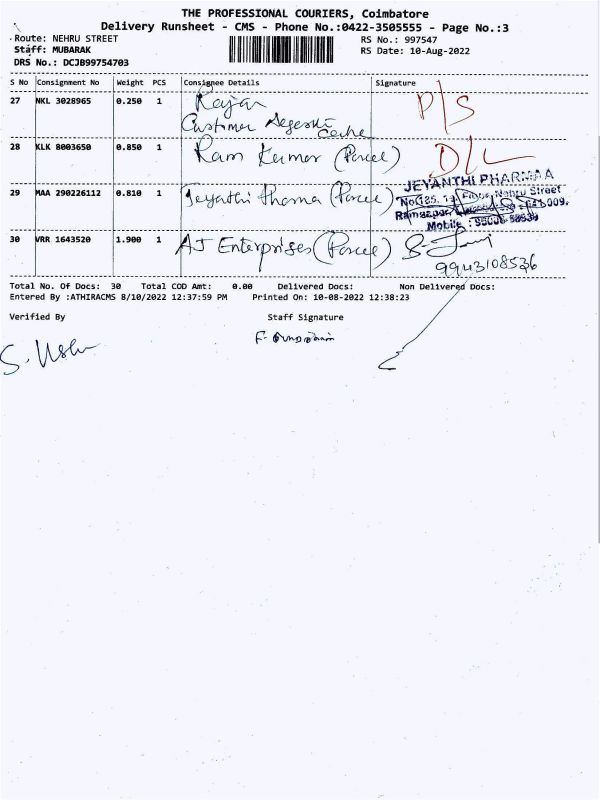 THE PROFESSIONAL COURIERS, Coimbatore
Delivery Runsheet - CMS - Phone No.:0422-3505555 - Page No.:3
Route: NEHRU STREET
RS No.: 997547
Staff: MUBARAK
RS Date: 10-Aug-2022
DRS No.: DCJB99754703
S No Consignment No Weight PCS Consignee Details Signature
27 NKL 3028965 0.250 1 Rajan P/S
Customer
28 KLK 8003650 0.850 1 Ram Kumar (Parcel) D/L
29 MAA 290226112 0.810 1 (Parcel)
JEYANTHI PHARMAA
Nehru Street
Mobile :
30 VRR 1643520 1.900 1 AJ Enterprises (Parcel)
9943108536
Total No. Of Docs: 30 Total COD Amt: 0.00 Delivered Docs: Non Delivered Docs:
Entered By :ATHIRACMS 8/10/2022 12:37:59 PM Printed On: 10-08-2022 12:38:23
Verified By Staff Signature